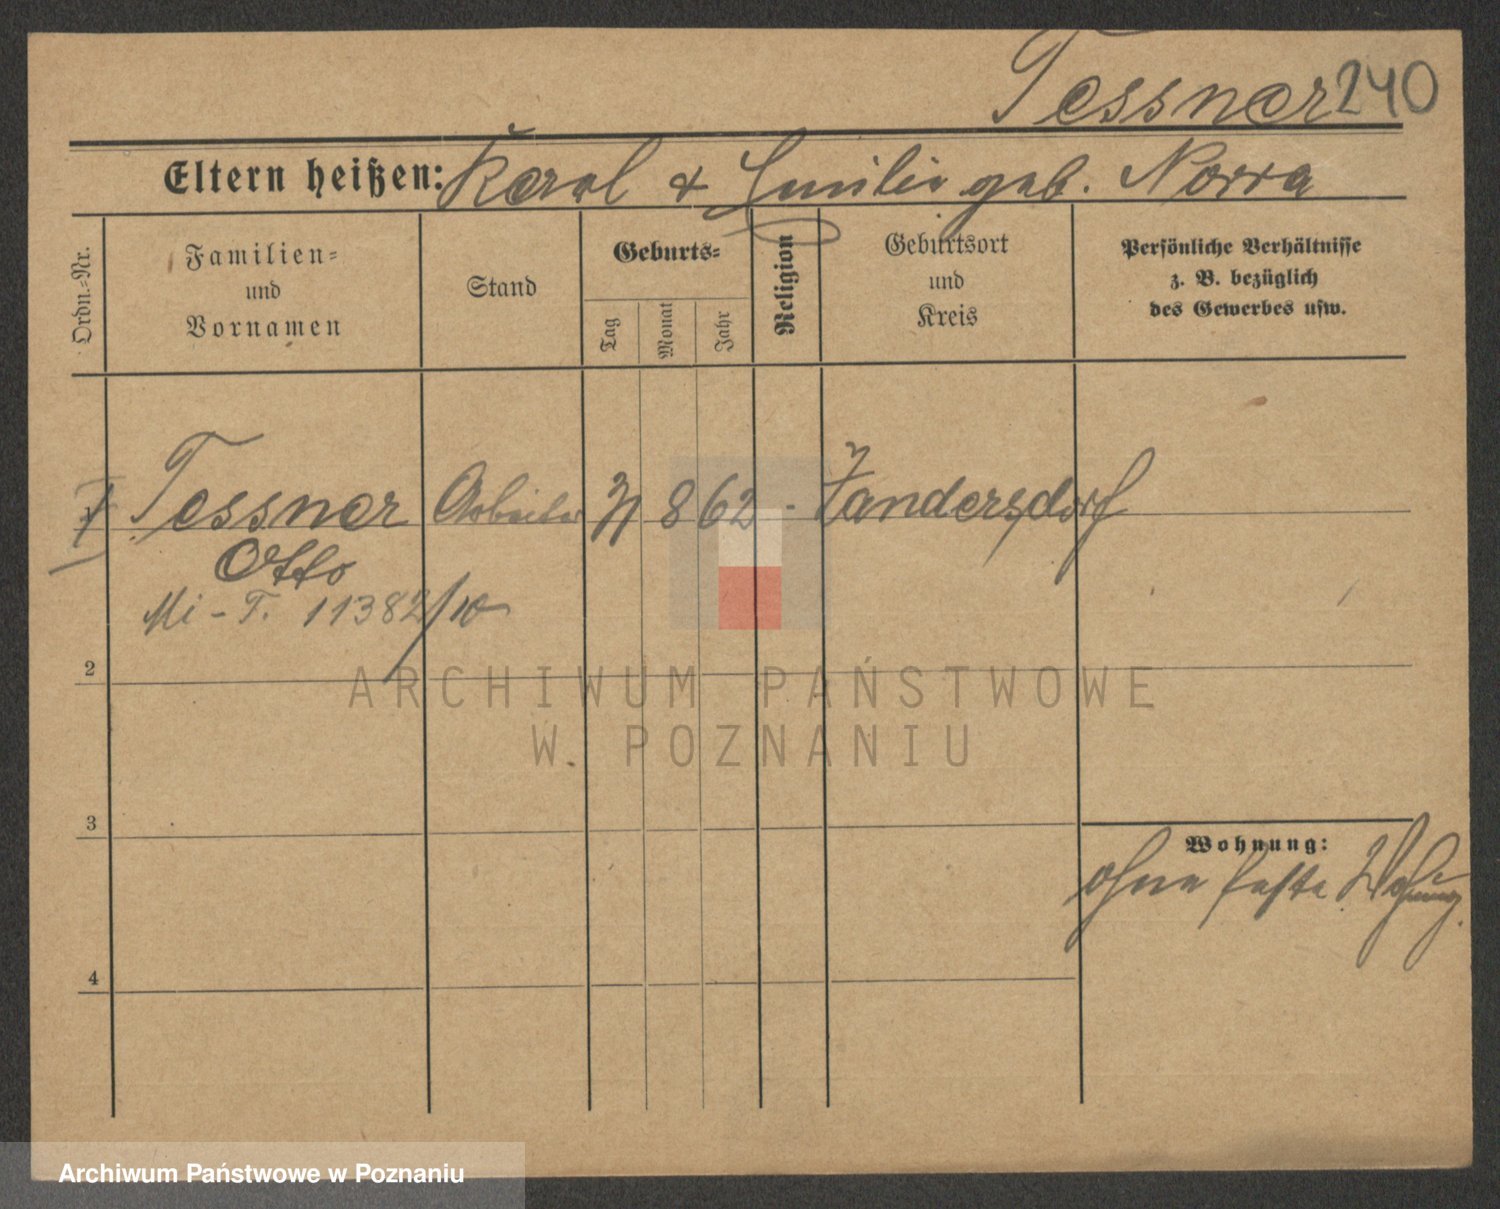 Tessner 240
Eltern heißen: Karol & Emilie geb. Norra
Ordn.=Nr.
Familien=
und
Vornamen
Stand
Geburts=
Tag
Monat
Jahr
Religion
Geburtsort
und
Kreis
Persönliche Verhältnisse
z. B. bezüglich
des Gewerbes usw.
1 Tessner Arbeiter 8 62 - Zandersdorf
Otto
Mi - T. 11382/10
2
ARCHIWUM PAŃSTWOWE
W POZNANIU
3
Wohnung:
ohne feste Wohnung.
4
Archiwum Państwowe w Poznaniu